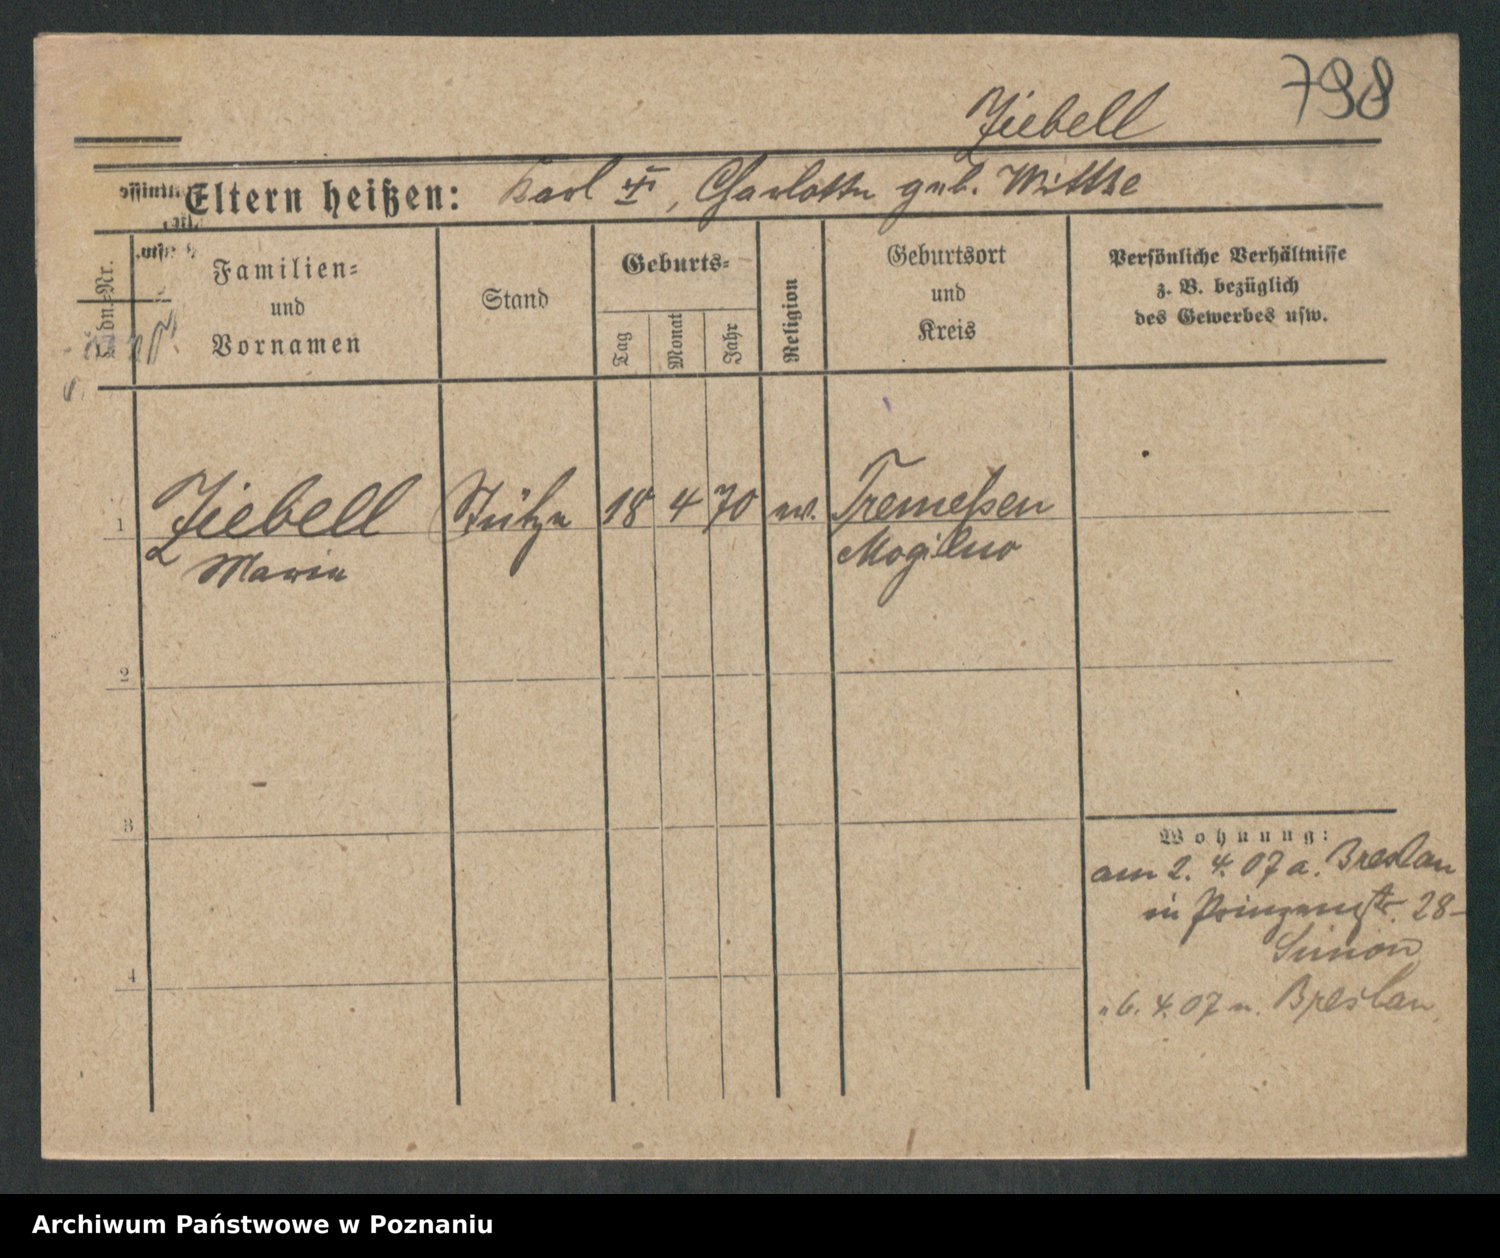 798
Ziebell
Eltern heißen: Karl, Charlotte geb. Wittke
Lfdn.-Nr.
Familien-
und
Vornamen
Stand
Geburts-
Tag
Monat
Jahr
Religion
Geburtsort
und
Kreis
Persönliche Verhältnisse
z. B. bezüglich
des Gewerbes usw.
1 Ziebell Stütze 18 4 70 ev. Tremeßen
Marie Mogilno
2
3
Wohnung:
am 2. 4. 07 a. Breslau
in Prinzenstr. 28-
Simon
4
" 6. 4. 07 n. Breslau
Archiwum Państwowe w Poznaniu